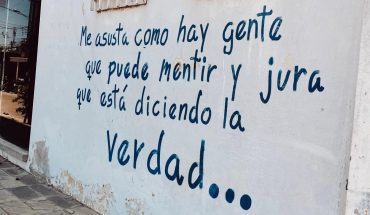 Me asusta como hay gente
que puede mentir y jura
que está diciendo la
verdad...